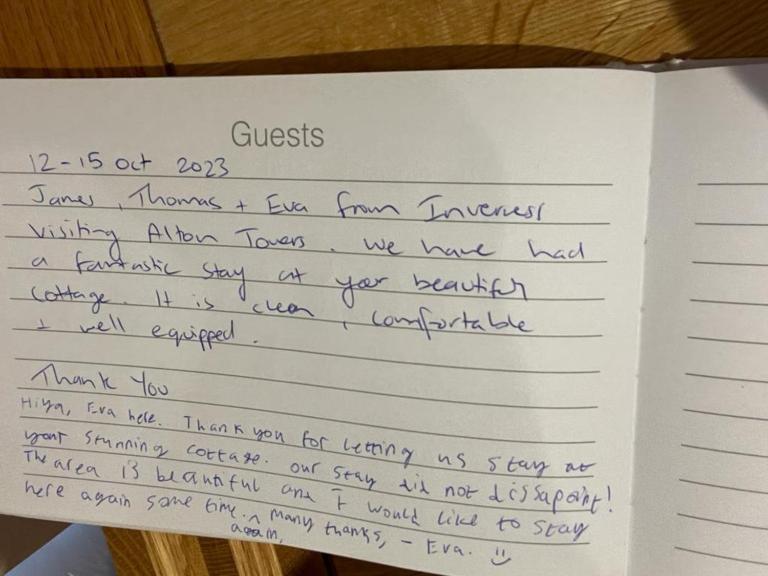 Guests
12-15 Oct 2023
James, Thomas + Eva from Inverness
visiting Alton Towers. We have had
a fantastic stay at your beautiful
cottage. It is clean, comfortable
+ well equipped.
Thank You
Hiya, Eva here. Thank you for letting us stay at
your stunning cottage. Our stay did not dissapoint!
The area is beautiful and I would like to stay
here again some time. ^ Many thanks, - Eva. :)
again,